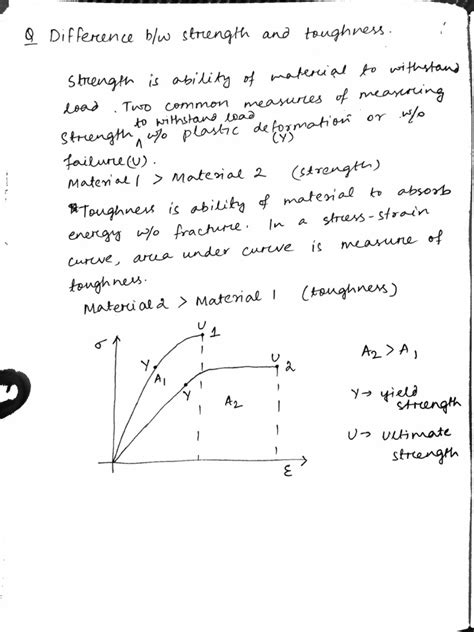 Q Difference b/w strength and toughness.
Strength is ability of material to withstand
load. Two common measures of measuring
to withstand load
strength ^ w/o plastic deformation or w/o
(Y)
failure (U).
Material 1 > Material 2 (strength)
*Toughness is ability of material to absorb
energy w/o fracture. In a stress-strain
curve, area under curve is measure of
toughness.
Material 2 > Material 1 (toughness)
σ
U 1
Y
A1
U 2
Y
A2
ε
A2 > A1
Y → yield
strength
U → Ultimate
strength